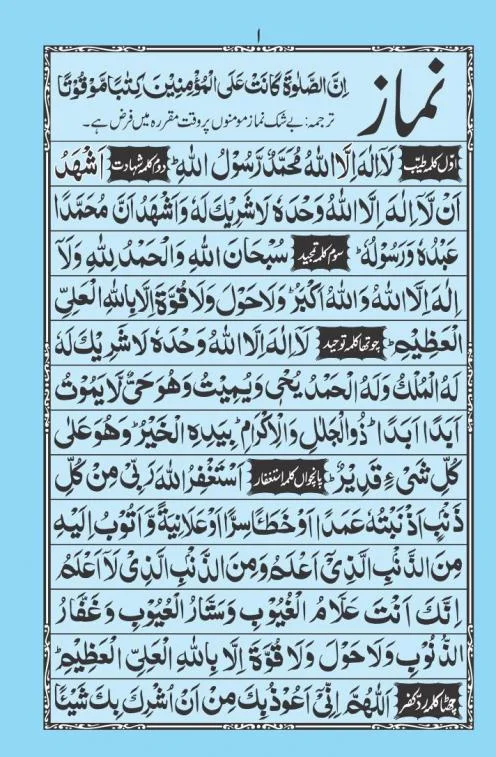 ۱
نماز
اِنَّ الصَّلٰوةَ كَانَتْ عَلَى الْمُؤْمِنِيْنَ كِتٰبًا مَّوْقُوْتًا
ترجمہ: بے شک نماز مومنوں پر وقت مقررہ میں فرض ہے۔
اوّل کلمہ طیّب لَآ اِلٰهَ اِلَّا اللهُ مُحَمَّدٌ رَّسُوْلُ اللهِ ؕ دوم کلمہ شہادت اَشْهَدُ
اَنْ لَّآ اِلٰهَ اِلَّا اللهُ وَحْدَهٗ لَا شَرِيْكَ لَهٗ وَاَشْهَدُ اَنَّ مُحَمَّدًا
عَبْدُهٗ وَرَسُوْلُهٗ ؕ سوم کلمہ تمجید سُبْحَانَ اللهِ وَالْحَمْدُ لِلّٰهِ وَلَآ
اِلٰهَ اِلَّا اللهُ وَاللهُ اَكْبَرُ ؕ وَلَا حَوْلَ وَلَا قُوَّةَ اِلَّا بِاللهِ الْعَلِيِّ
الْعَظِيْمِ ؕ چوتھا کلمہ توحید لَآ اِلٰهَ اِلَّا اللهُ وَحْدَهٗ لَا شَرِيْكَ لَهٗ
لَهُ الْمُلْكُ وَلَهُ الْحَمْدُ يُحْيٖ وَيُمِيْتُ وَهُوَ حَيٌّ لَّا يَمُوْتُ
اَبَدًا اَبَدًا ؕ ذُو الْجَلٰلِ وَالْاِكْرَامِ ؕ بِيَدِهِ الْخَيْرُ ؕ وَهُوَ عَلٰى
كُلِّ شَيْءٍ قَدِيْرٌ ؕ پانچواں کلمہ استغفار اَسْتَغْفِرُ اللهَ رَبِّيْ مِنْ كُلِّ
ذَنْبٍ اَذْنَبْتُهٗ عَمَدًا اَوْ خَطَأً سِرًّا اَوْ عَلَانِيَةً وَّاَتُوْبُ اِلَيْهِ
مِنَ الذَّنْبِ الَّذِيْٓ اَعْلَمُ وَمِنَ الذَّنْبِ الَّذِيْ لَآ اَعْلَمُ
اِنَّكَ اَنْتَ عَلَّامُ الْغُيُوْبِ وَسَتَّارُ الْعُيُوْبِ وَغَفَّارُ
الذُّنُوْبِ وَلَا حَوْلَ وَلَا قُوَّةَ اِلَّا بِاللهِ الْعَلِيِّ الْعَظِيْمِ ؕ
چھٹا کلمہ رد کفر اَللّٰهُمَّ اِنِّيْٓ اَعُوْذُ بِكَ مِنْ اَنْ اُشْرِكَ بِكَ شَيْئًا